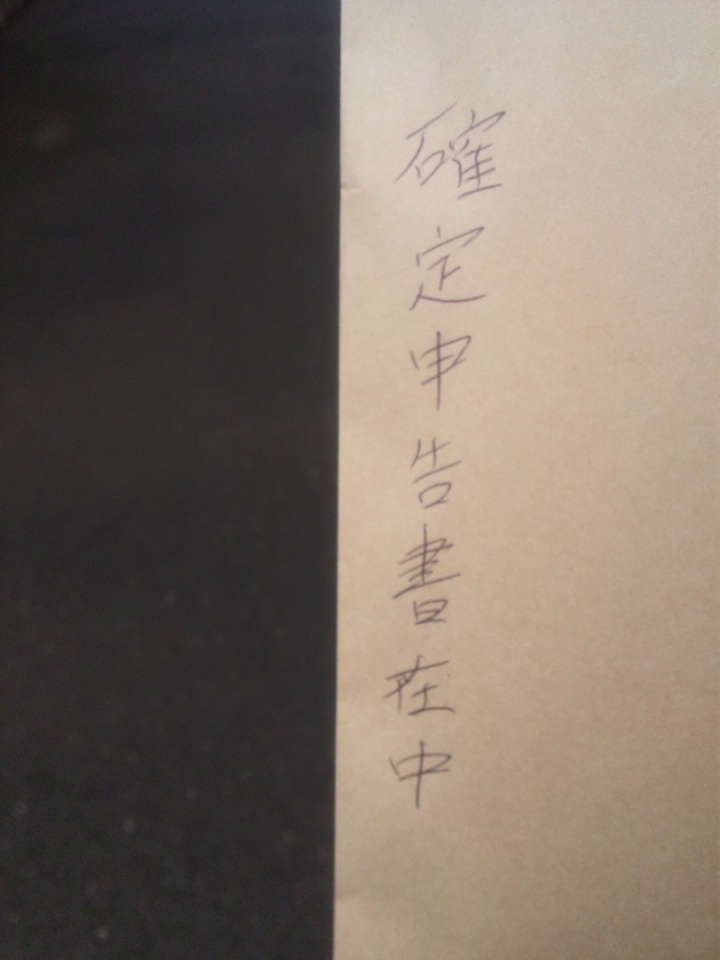 確定申告書在中